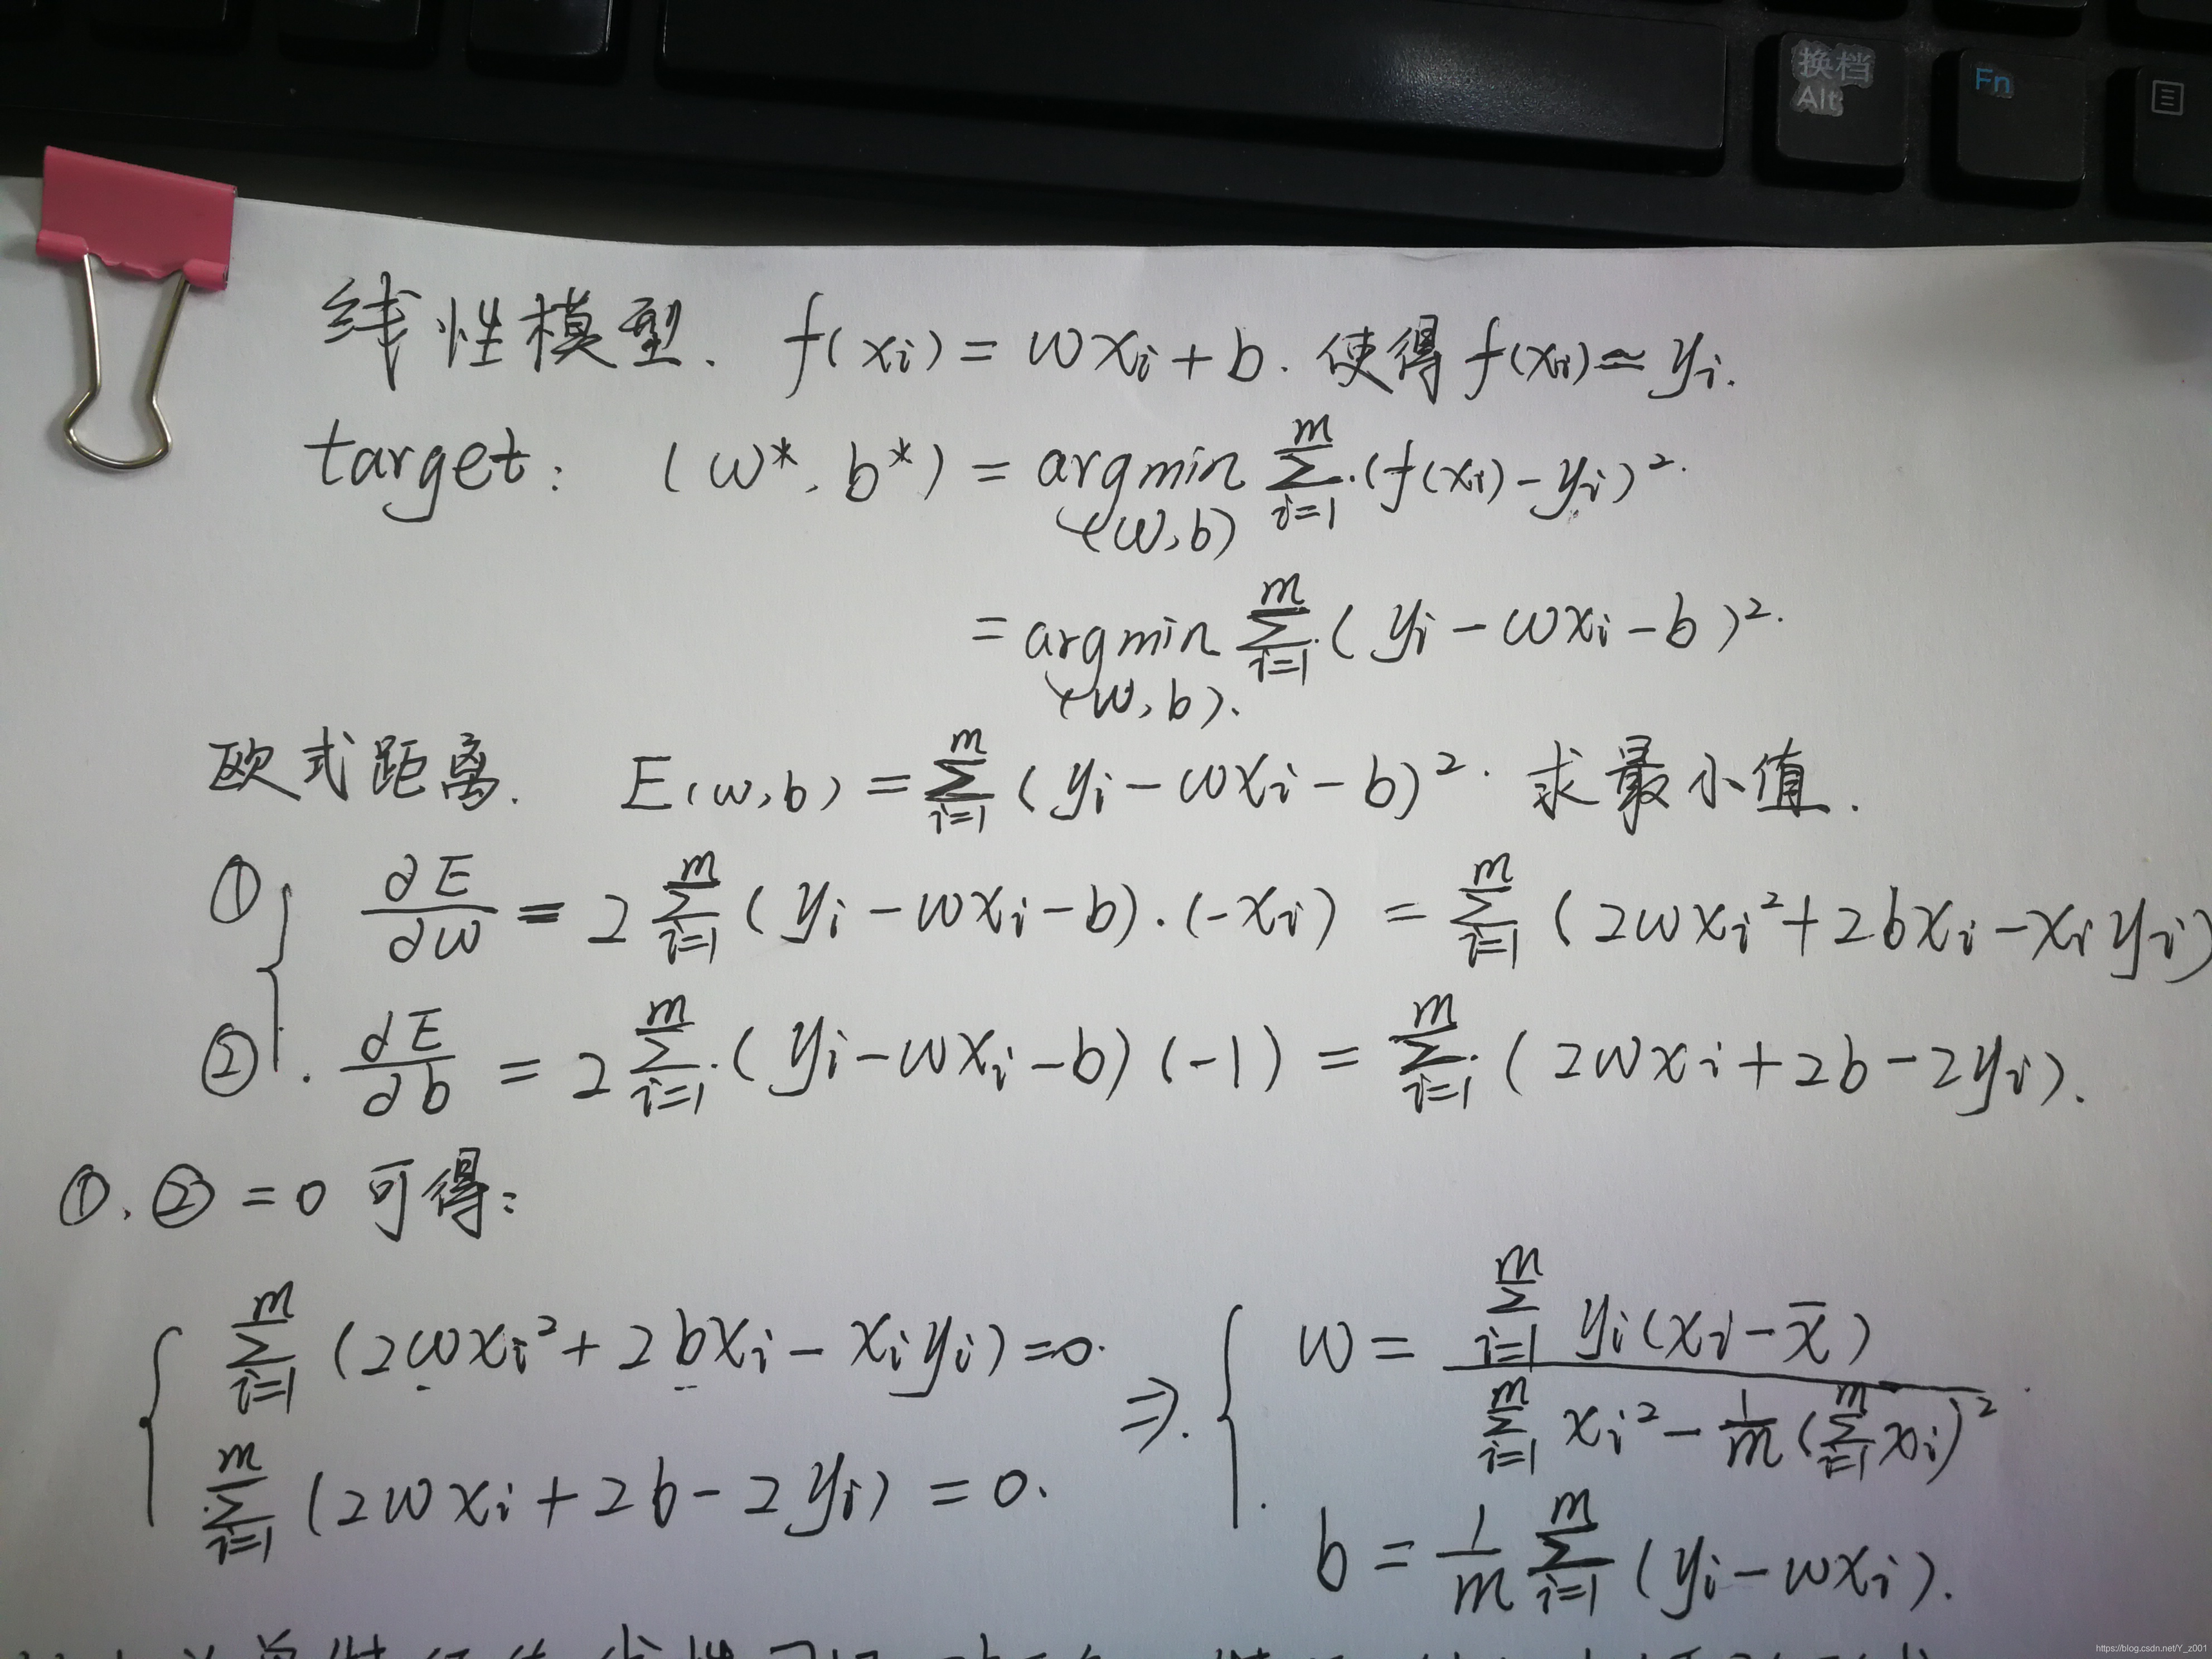 换档
Alt
Fn
线性模型. f(xi) = wxi + b. 使得 f(xi) ≃ yi.
target: (w*, b*) = arg min (w,b) ∑_{i=1}^{m} (f(xi) - yi)².
= arg min (w,b). ∑_{i=1}^{m} (yi - wxi - b)².
欧式距离. E(w,b) = ∑_{i=1}^{m} (yi - wxi - b)². 求最小值.
① ∂E/∂w = 2 ∑_{i=1}^{m} (yi - wxi - b)·(-xi) = ∑_{i=1}^{m} (2wxi² + 2bxi - xiyi)
②. ∂E/∂b = 2 ∑_{i=1}^{m} (yi - wxi - b)(-1) = ∑_{i=1}^{m} (2wxi + 2b - 2yi).
①. ② = 0 可得:
{ ∑_{i=1}^{m} (2wxi² + 2bxi - xiyi) = 0. ⇒. { w = ∑_{i=1}^{m} yi(xi - x̄) / ∑_{i=1}^{m} xi² - 1/m (∑_{i=1}^{m} xi)²
∑_{i=1}^{m} (2wxi + 2b - 2yi) = 0. b = 1/m ∑_{i=1}^{m} (yi - wxi).
https://blog.csdn.net/Y_z001